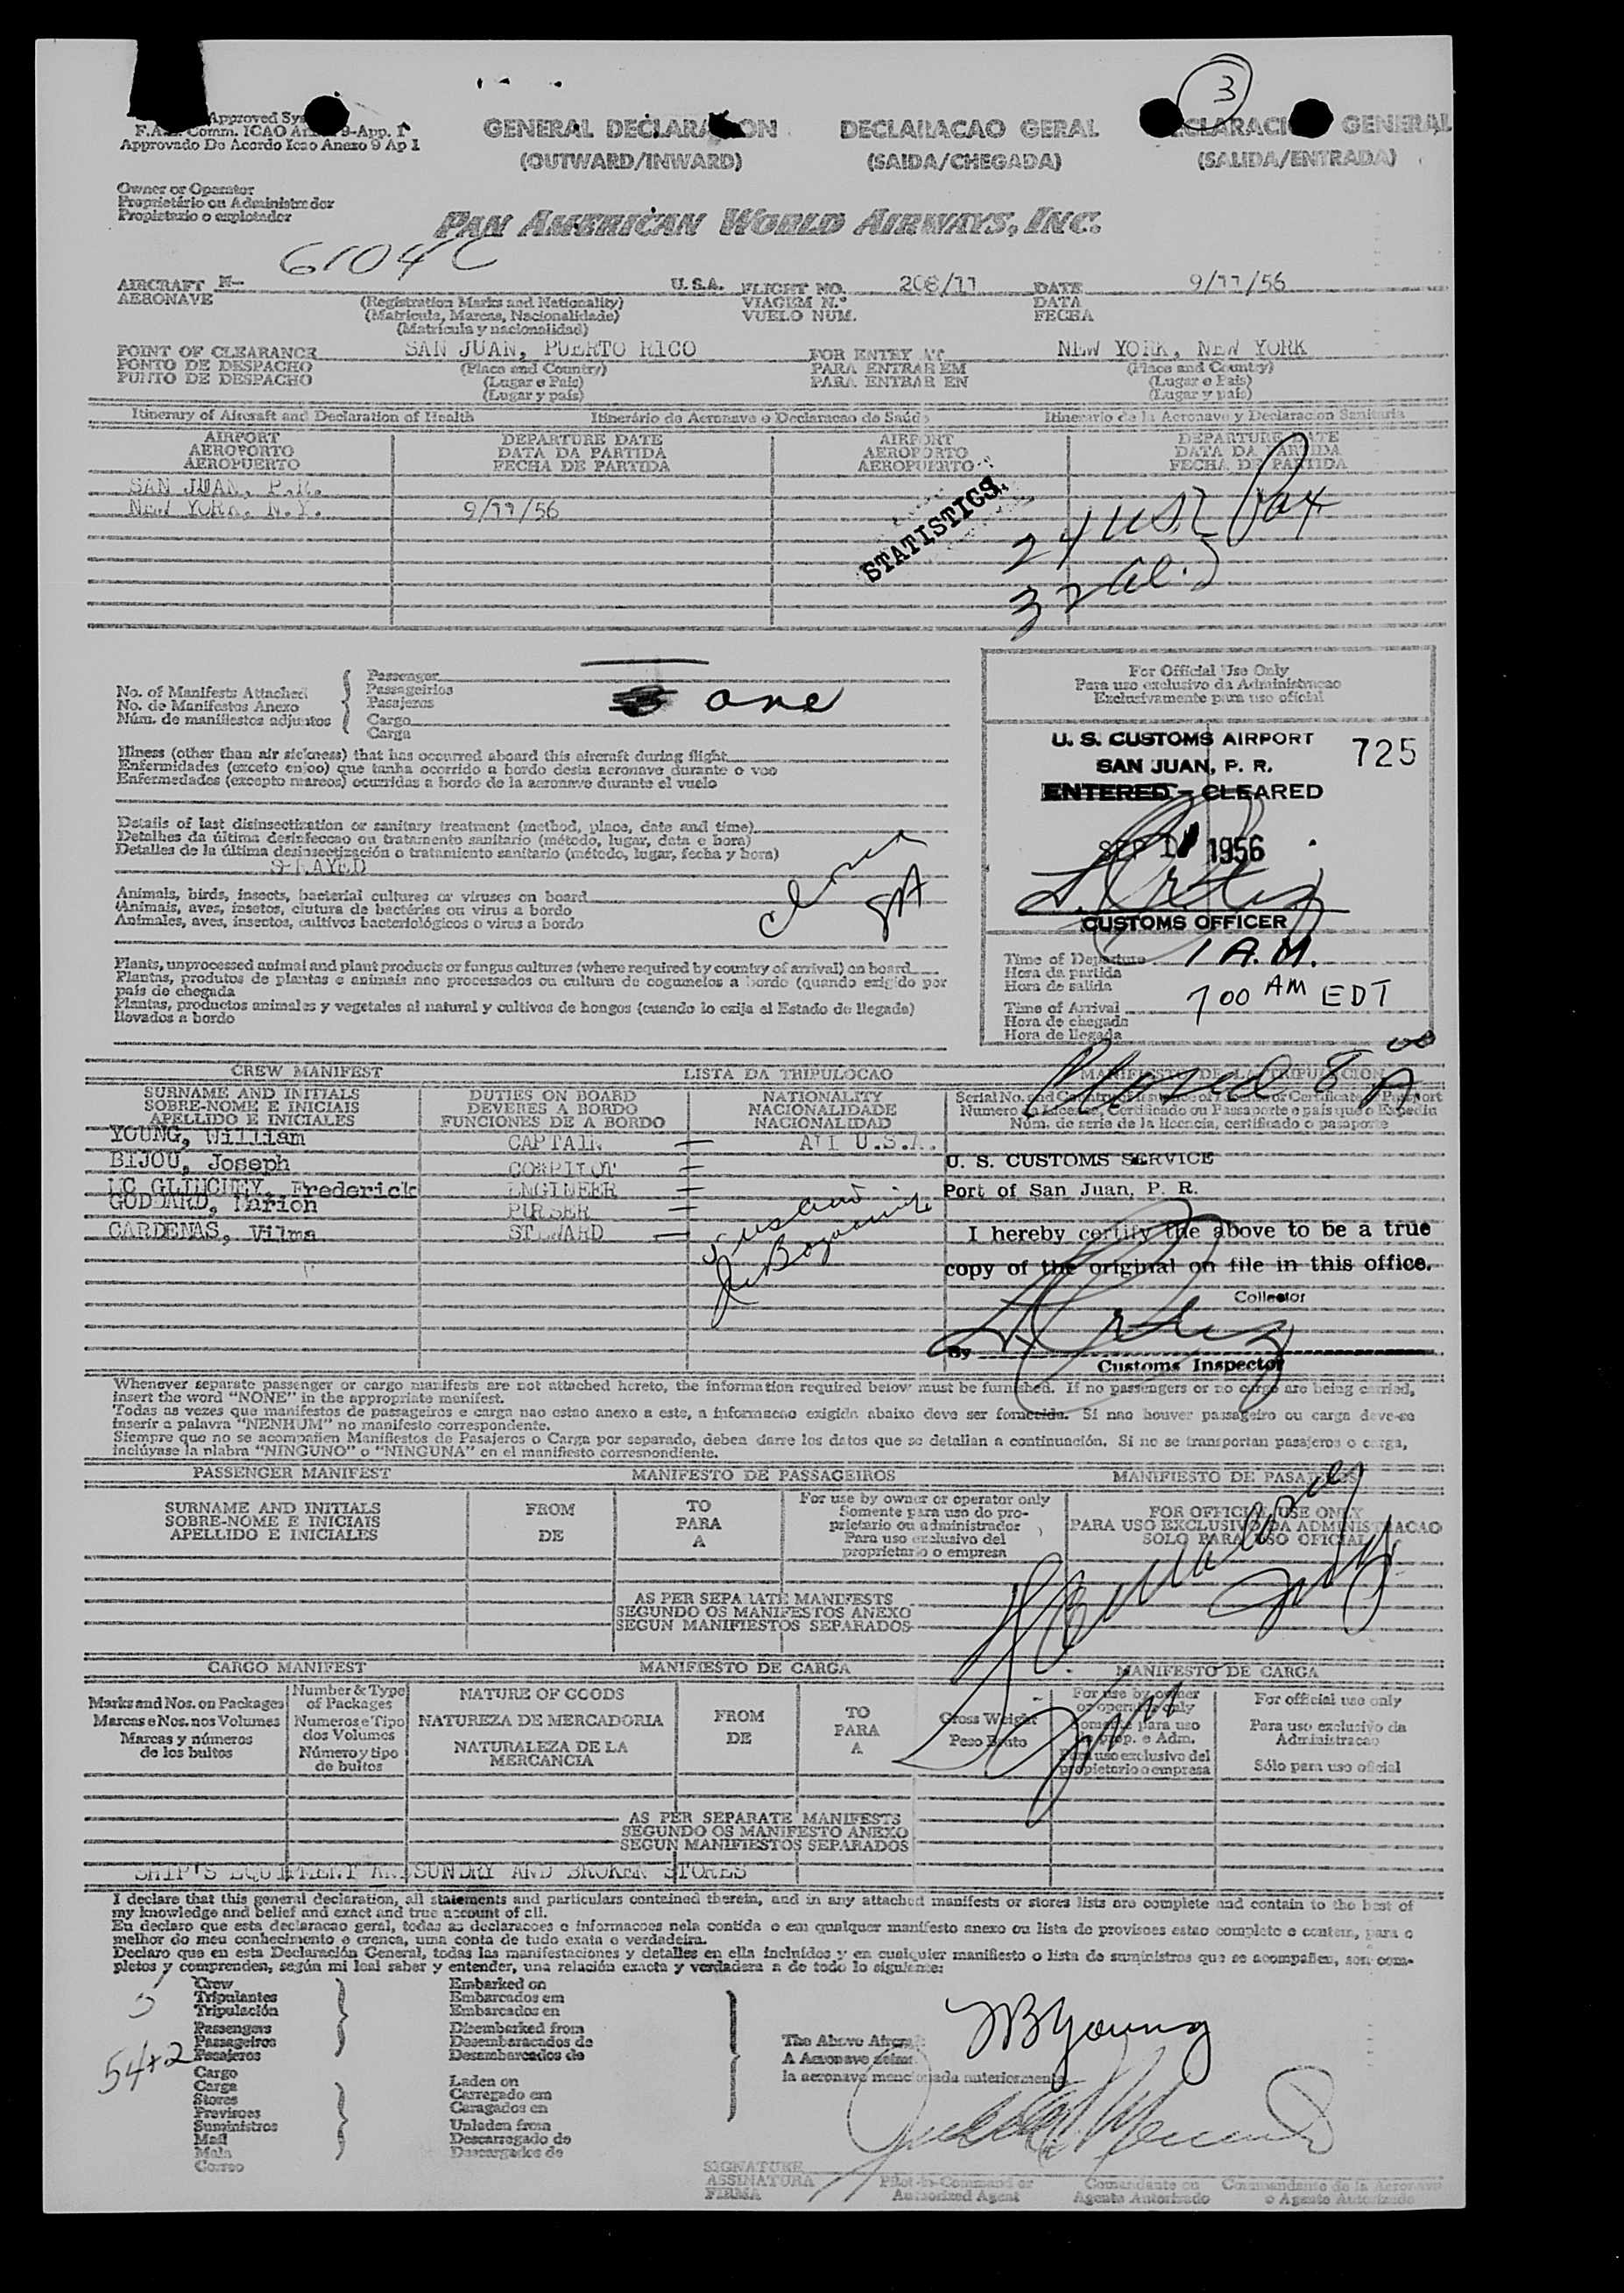 3
Approved Sys
F.A.L. Comm. ICAO An 9-App. 1
Approvado De Acordo Icao Anexo 9 Ap 1
GENERAL DECLARATION
(OUTWARD/INWARD)
DECLARACAO GERAL
(SAIDA/CHEGADA)
DECLARACION GENERAL
(SALIDA/ENTRADA)
Owner or Operator
Proprietário ou Administrador
Propietario o explotador
PAN AMERICAN WORLD AIRWAYS, INC.
6104C
AIRCRAFT N- U.S.A. FLIGHT NO. 208/11 DATE 9/11/56
AERONAVE (Registration Marks and Nationality) VIAGEM N.º DATA
(Matricula, Marcas, Nacionalidade) VUELO NUM. FECHA
(Matricula y nacionalidad)
POINT OF CLEARANCE SAN JUAN, PUERTO RICO FOR ENTRY AT NEW YORK, NEW YORK
PONTO DE DESPACHO (Place and Country) PARA ENTRAR EM (Place and Country)
PUNTO DE DESPACHO (Lugar e Pais) PARA ENTRAR EN (Lugar e Pais)
(Lugar y pais) (Lugar y pais)
Itinerary of Aircraft and Declaration of Health Itinerário de Aeronave e Declaracao de Saúde Itinerario de la Aeronave y Declaracion Sanitaria
AIRPORT DEPARTURE DATE AIRPORT DEPARTURE DATE
AEROPORTO DATA DA PARTIDA AEROPORTO DATA DA PARTIDA
AEROPUERTO FECHA DE PARTIDA AEROPUERTO FECHA DE PARTIDA
SAN JUAN, P.R.
NEW YORK, N.Y. 9/11/56
STATISTICS
No. of Manifests Attached
No. de Manifestos Anexo
Núm. de manifiestos adjuntos
Passenger
Passageirios
Pasajeros
Cargo
Carga
one
Illness (other than air sickness) that has occurred aboard this aircraft during flight
Enfermidades (exceto enjoo) que tanha ocorrido a bordo desta aeronave durante o voo
Enfermedades (excepto mareos) ocurridas a bordo de la aeronave durante el vuelo
Details of last disinsectization or sanitary treatment (method, place, date and time)
Detalhes da última desinfeccao ou tratamento sanitario (método, lugar, data e hora)
Detalles de la última desinsectización o tratamiento sanitario (método, lugar, fecha y hora)
SPRAYED
Animals, birds, insects, bacterial cultures or viruses on board
Animais, aves, insetos, clutura de bactérias ou virus a bordo
Animales, aves, insectos, cultivos bacteriológicos o virus a bordo
Plants, unprocessed animal and plant products or fungus cultures (where required by country of arrival) on board
Plantas, produtos de plantas e animais nao processados ou cultura de cogumelos a bordo (quando exigido por
pais de chegada
Plantas, productos animales y vegetales al natural y cultivos de hongos (cuando lo exija el Estado de llegada)
llevados a bordo
For Official Use Only
Para uso exclusivo da Administracao
Exclusivamente para uso oficial
U. S. CUSTOMS AIRPORT 725
SAN JUAN, P. R.
ENTERED - CLEARED
SEP 1956
CUSTOMS OFFICER
Time of Departure 1 A.M.
Hora da partida
Hora de salida
Time of Arrival 7 00 AM EDT
Hora de chegada
Hora de llegada
Closed 8 00 A
CREW MANIFEST LISTA DA TRIPULOCAO MANIFIESTO DE LA TRIPULACION
SURNAME AND INITIALS DUTIES ON BOARD NATIONALITY Serial No. and Country of Issuance of License or Certificate or Passport
SOBRE-NOME E INICIAIS DEVERES A BORDO NACIONALIDADE Numero da Licensa, Certificado ou Passaporte e pais que o Expediu
APELLIDO E INICIALES FUNCIONES DE A BORDO NACIONALIDAD Núm. de serie de la licencia, certificado o pasaporte
YOUNG, William CAPTAIN All U.S.A.
BIJOU, Joseph COOPILOT
MC GLINCHEY, Frederick ENGINEER
GODDARD, Marion PURSER
CARDENAS, Vilma STEWARD
U. S. CUSTOMS SERVICE
Port of San Juan, P. R.
I hereby certify the above to be a true
copy of the original on file in this office.
Collector
By
Customs Inspector
Whenever separate passenger or cargo manifests are not attached hereto, the information required below must be furnished. If no passengers or no cargo are being carried,
insert the word "NONE" in the appropriate manifest.
Todas as vezes que manifestos de passageiros e carga nao estao anexo a este, a informacao exigida abaixo deve ser fornecida. Si nao houver passageiro ou carga deve-se
inserir a palavra "NENHUM" no manifesto correspondente.
Siempre que no se acompañen Manifiestos de Pasajeros o Carga por separado, deben darse los datos que se detallan a continuación. Si no se transportan pasajeros o carga,
inclúyase la plabra "NINGUNO" o "NINGUNA" en el manifiesto correspondiente.
PASSENGER MANIFEST MANIFESTO DE PASSAGEIROS MANIFIESTO DE PASAJEROS
SURNAME AND INITIALS
SOBRE-NOME E INICIAIS
APELLIDO E INICIALES
FROM
DE
TO
PARA
A
For use by owner or operator only
Somente para uso do pro-
prietario ou administrador
Para uso exclusivo del
proprietario o empresa
FOR OFFICIAL USE ONLY
PARA USO EXCLUSIVO DA ADMINISTRACAO
SOLO PARA USO OFICIAL
AS PER SEPARATE MANIFESTS
SEGUNDO OS MANIFESTOS ANEXO
SEGUN MANIFIESTOS SEPARADOS
CARGO MANIFEST MANIFIESTO DE CARGA MANIFESTO DE CARGA
Marks and Nos. on Packages
Marcas e Nos. nos Volumes
Marcas y números
de los bultos
Number & Type
of Packages
Numeros e Tipo
dos Volumes
Número y tipo
de bultos
NATURE OF GOODS
NATUREZA DE MERCADORIA
NATURALEZA DE LA
MERCANCIA
FROM
DE
TO
PARA
A
Gross Weight
Peso Bruto
For use by owner
or operator only
Somente para uso
da prop. e Adm.
Para uso exclusivo del
propietorio o empresa
For official use only
Para uso exclusivo da
Administracao
Sólo para uso oficial
AS PER SEPARATE MANIFESTS
SEGUNDO OS MANIFESTO ANEXO
SEGUN MANIFIESTOS SEPARADOS
SHIP'S EQUIPMENT AND SUNDRY AND BROKEN STORES
I declare that this general declaration, all statements and particulars contained therein, and in any attached manifests or stores lists are complete and contain to the best of
my knowledge and belief and exact and true account of all.
Eu declaro que esta declaracao geral, todas as declaracoes e informacoes nela contida e em qualquer manifesto anexo ou lista de provisoes estao completo e contem, para o
melhor do meu conhecimento e crenca, uma conta de tudo exata e verdadeira.
Declaro que en esta Declaración General, todas las manifestaciones y detalles en ella incluídos y en cualquier manifiesto o lista de suministros que se acompañen, son com-
pletos y comprenden, según mi leal saber y entender, una relación exacta y verdadera a de todo lo siguiente:
5
54+2
Crew
Tripulantes
Tripulación
Passengers
Passageiros
Pasajeros
Cargo
Carga
Stores
Provisoes
Suministros
Mail
Mala
Correo
Embarked on
Embarcados em
Embarcados en
Disembarked from
Desembaracados de
Desembarcados de
Laden on
Carregado em
Caragados en
Unladen from
Descarregado de
Descargados de
The Above Aircraft
A Aeronave acima
la aeronave mencionada anteriormente
WBYoung
SIGNATURE
ASSINATURA
FIRMA
Pilot-in-Command or
Authorized Agent
Comandante ou
Agente Autorizado
Commandante de la Aeronave
o Agente Autorizado